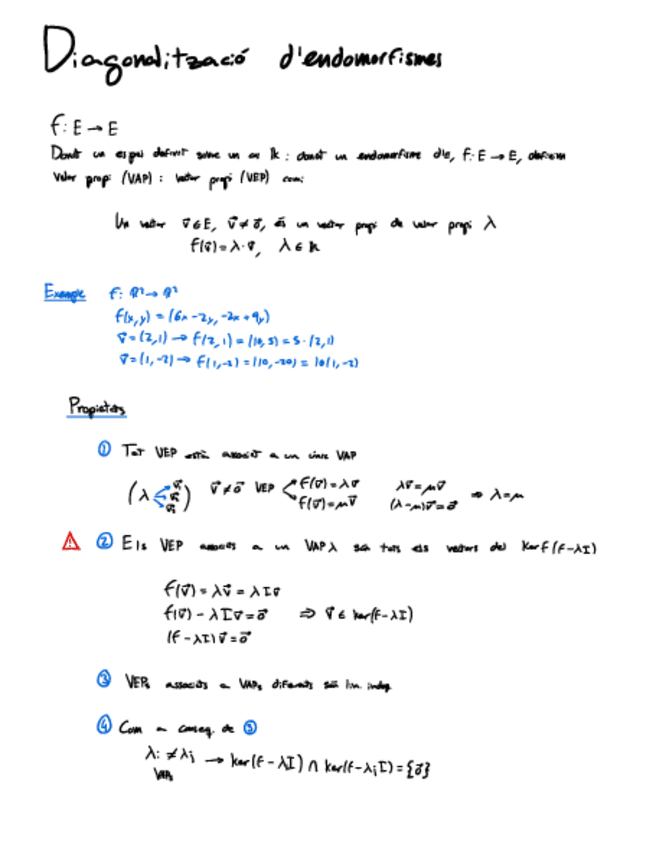 Diagonalització d'endomorfismes
f: E → E
Donat un espai definit sobre un cos 𝕜 : donat un endomorfisme d'E, f: E → E, definim
valor propi (VAP) i vector propi (VEP) com:
Un vector v⃗ ∈ E, v⃗ ≠ 0⃗, és un vector propi de valor propi λ
f(v⃗) = λ·v⃗, λ ∈ 𝕜
Exemple f: ℝ² → ℝ²
f(x,y) = (6x - 2y, -2x + 9y)
v⃗ = (2,1) → f(2,1) = (10,5) = 5·(2,1)
v⃗ = (1,-2) → f(1,-2) = (10,-20) = 10(1,-2)
Propietats
① Tot VEP està associat a un únic VAP
(λ v⃗₁ v⃗₂ v⃗₃) v⃗ ≠ 0⃗ VEP f(v⃗) = λv⃗ λv⃗ = μv⃗
f(v⃗) = μv⃗ (λ-μ)v⃗ = 0⃗ ⇒ λ = μ
⚠ ② Els VEP associats a un VAP λ són tots els vectors del Ker f (f-λI)
f(v⃗) = λv⃗ = λIv⃗
f(v⃗) - λIv⃗ = 0⃗ ⇒ v⃗ ∈ ker(f-λI)
(f-λI)v⃗ = 0⃗
③ VEPs associats a VAPs diferents són lin. indep.
④ Com a conseq. de ③
λi ≠ λj → ker(f-λI) ∩ ker(f-λjI) = {0⃗}
VAPs